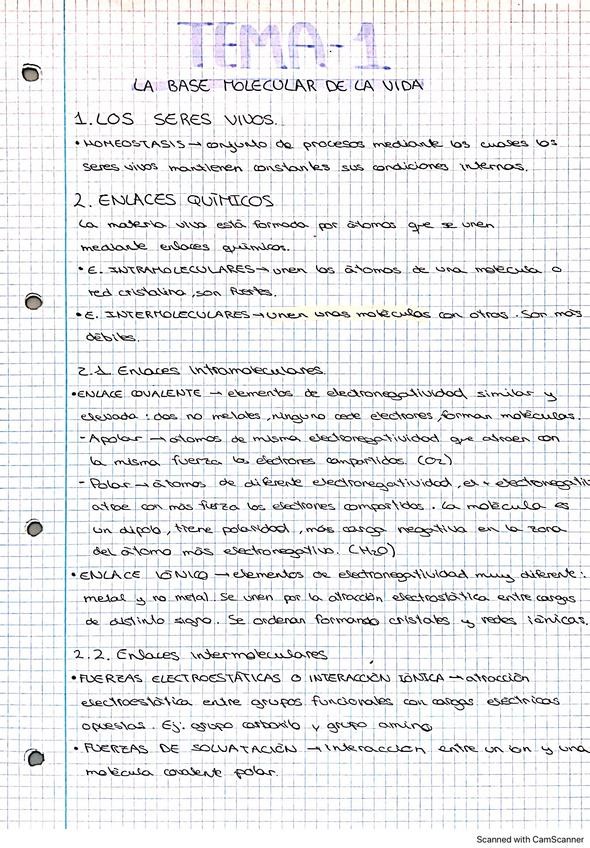 TEMA-1
LA BASE MOLECULAR DE LA VIDA
1. LOS SERES VIVOS.
• HOMEOSTASIS → conjunto de procesos mediante los cuales los
seres vivos mantienen constantes sus condiciones internas.
2. ENLACES QUÍMICOS
La materia viva está formada por átomos que se unen
mediante enlaces químicos.
• E. INTRAMOLECULARES → unen los átomos de una molécula o
red cristalina, son fuertes.
• E. INTERMOLECULARES → unen unas moléculas con otras. Son más
débiles.
2.1. Enlaces intramoleculares.
• ENLACE COVALENTE → elementos de electronegatividad similar y
elevada: dos no metales, ninguno cede electrones, forman moléculas.
- Apolar → átomos de misma electronegatividad que atraen con
la misma fuerza los electrones compartidos. (O2)
- Polar → átomos de diferente electronegatividad, el + electronegati
atrae con más fuerza los electrones compartidos. La molécula es
un dipolo, tiene polaridad, más carga negativa en la zona
del átomo más electronegativo. (H2O)
• ENLACE IÓNICO → elementos de electronegatividad muy diferente:
metal y no metal. Se unen por la atracción electrostática entre cargas
de distinto signo. Se ordenan formando cristales y redes iónicas.
2.2. Enlaces intermoleculares
• FUERZAS ELECTROESTÁTICAS O INTERACCIÓN IÓNICA → atracción
electroestática entre grupos funcionales con cargas eléctricas
opuestas. Ej: grupo carboxilo y grupo amino
• FUERZAS DE SOLVATACIÓN → Interacción entre un ion y una
molécula covalente polar.
Scanned with CamScanner